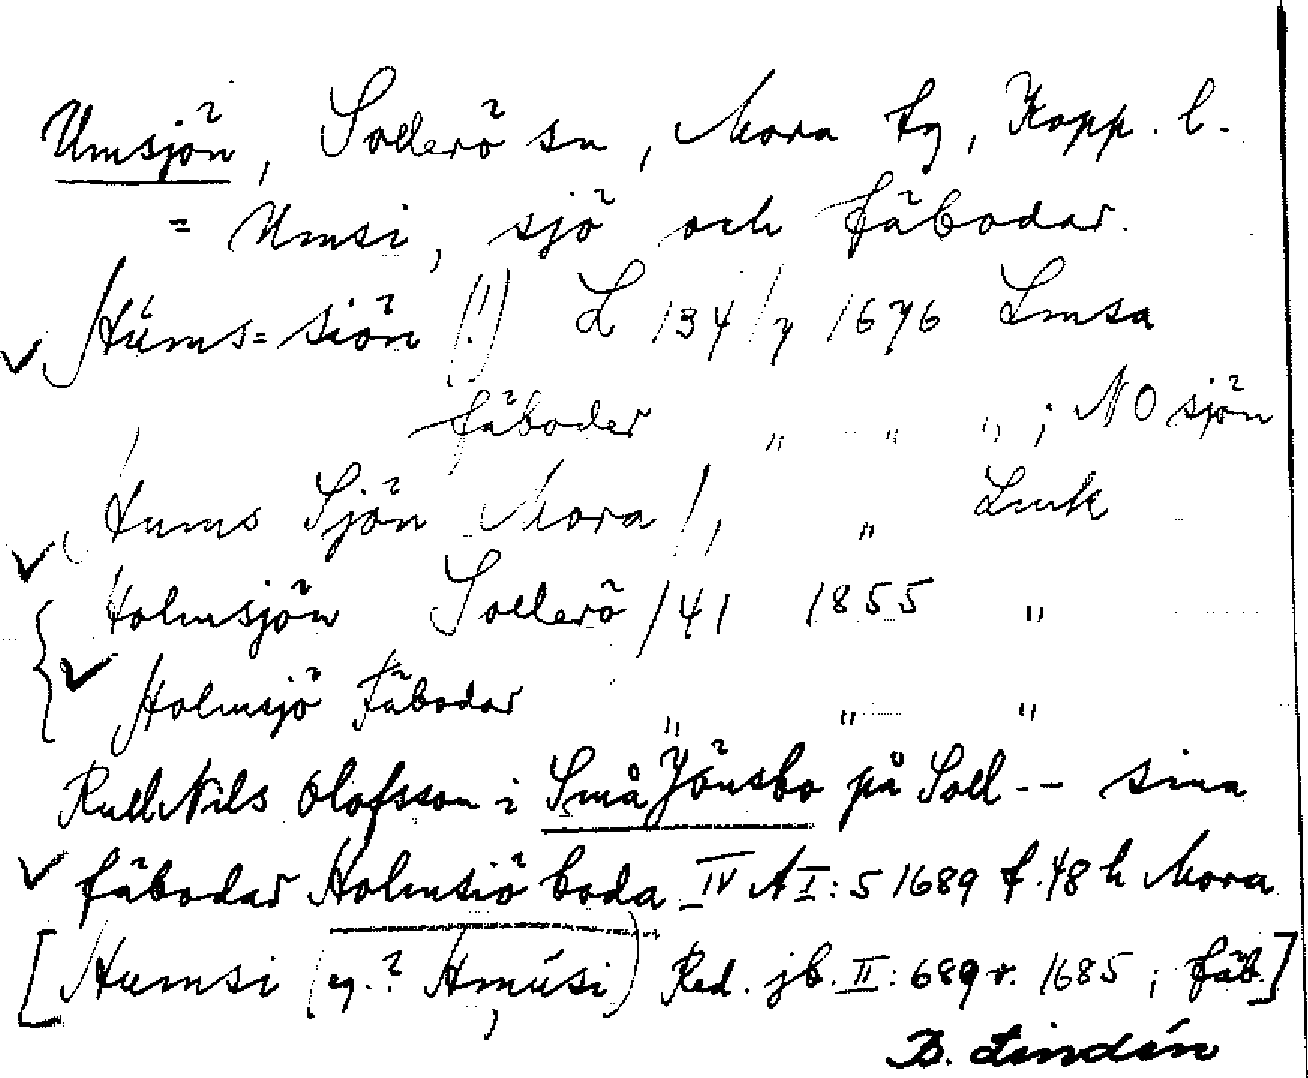 Umsjön, Sollerö sn, Mora tg, Kopp. l.
= Umsi, sjö och fäbodar.
Hüms=siön (!) L 134/7 1676 Lmsa
fäboder " " " ; NO sjön
Hums Sjön Mora /1 " Lmk
Holmsjön Sollerö /41 1855 "
Holmsjö Fäbodar " " "
Rull Nils Olofsson i Små Jönsbo på Soll-- sina
fäbodar Holmsiö boda IV A I:5 1689 f. 48 h Mora
[Humsi (eg.? Hmúsi) Red. jb. II: 689 v. 1685 ; fäb.]
B. Lindén